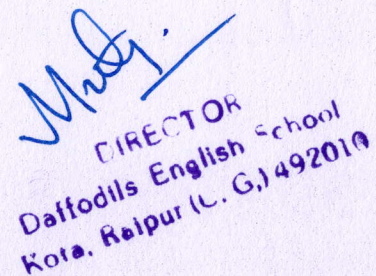 DIRECTOR
Daffodils English School
Kota, Raipur (C. G,) 492010